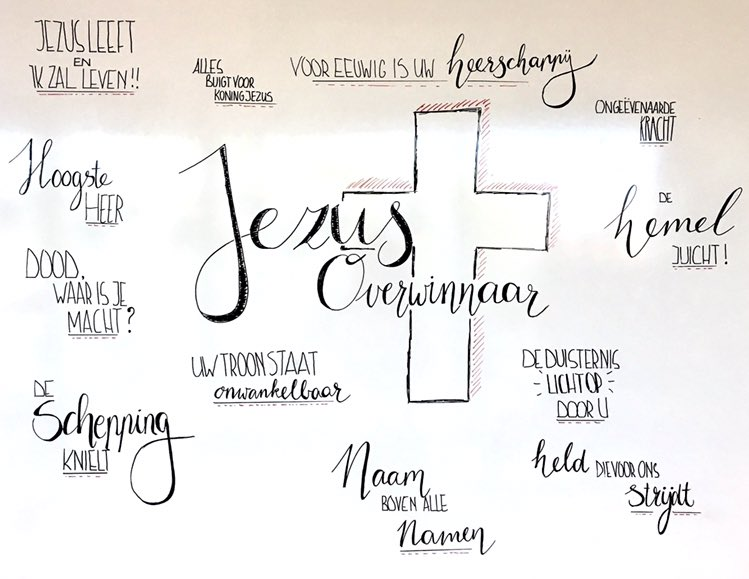 JEZUS LEEFT
EN
IK ZAL LEVEN!!
ALLES
BUIGT VOOR
KONING JEZUS
VOOR EEUWIG IS UW heerschappij
ONGEËVENAARDE
KRACHT
Hoogste
HEER
Jezus
Overwinnaar
DE
hemel
JUICHT!
DOOD,
WAAR IS JE
MACHT?
UW TROON STAAT
onwankelbaar
DE DUISTERNIS
LICHT OP
DOOR U
DE
Schepping
KNIELT
Naam
BOVEN ALLE
Namen
held DIE VOOR ONS
strijdt